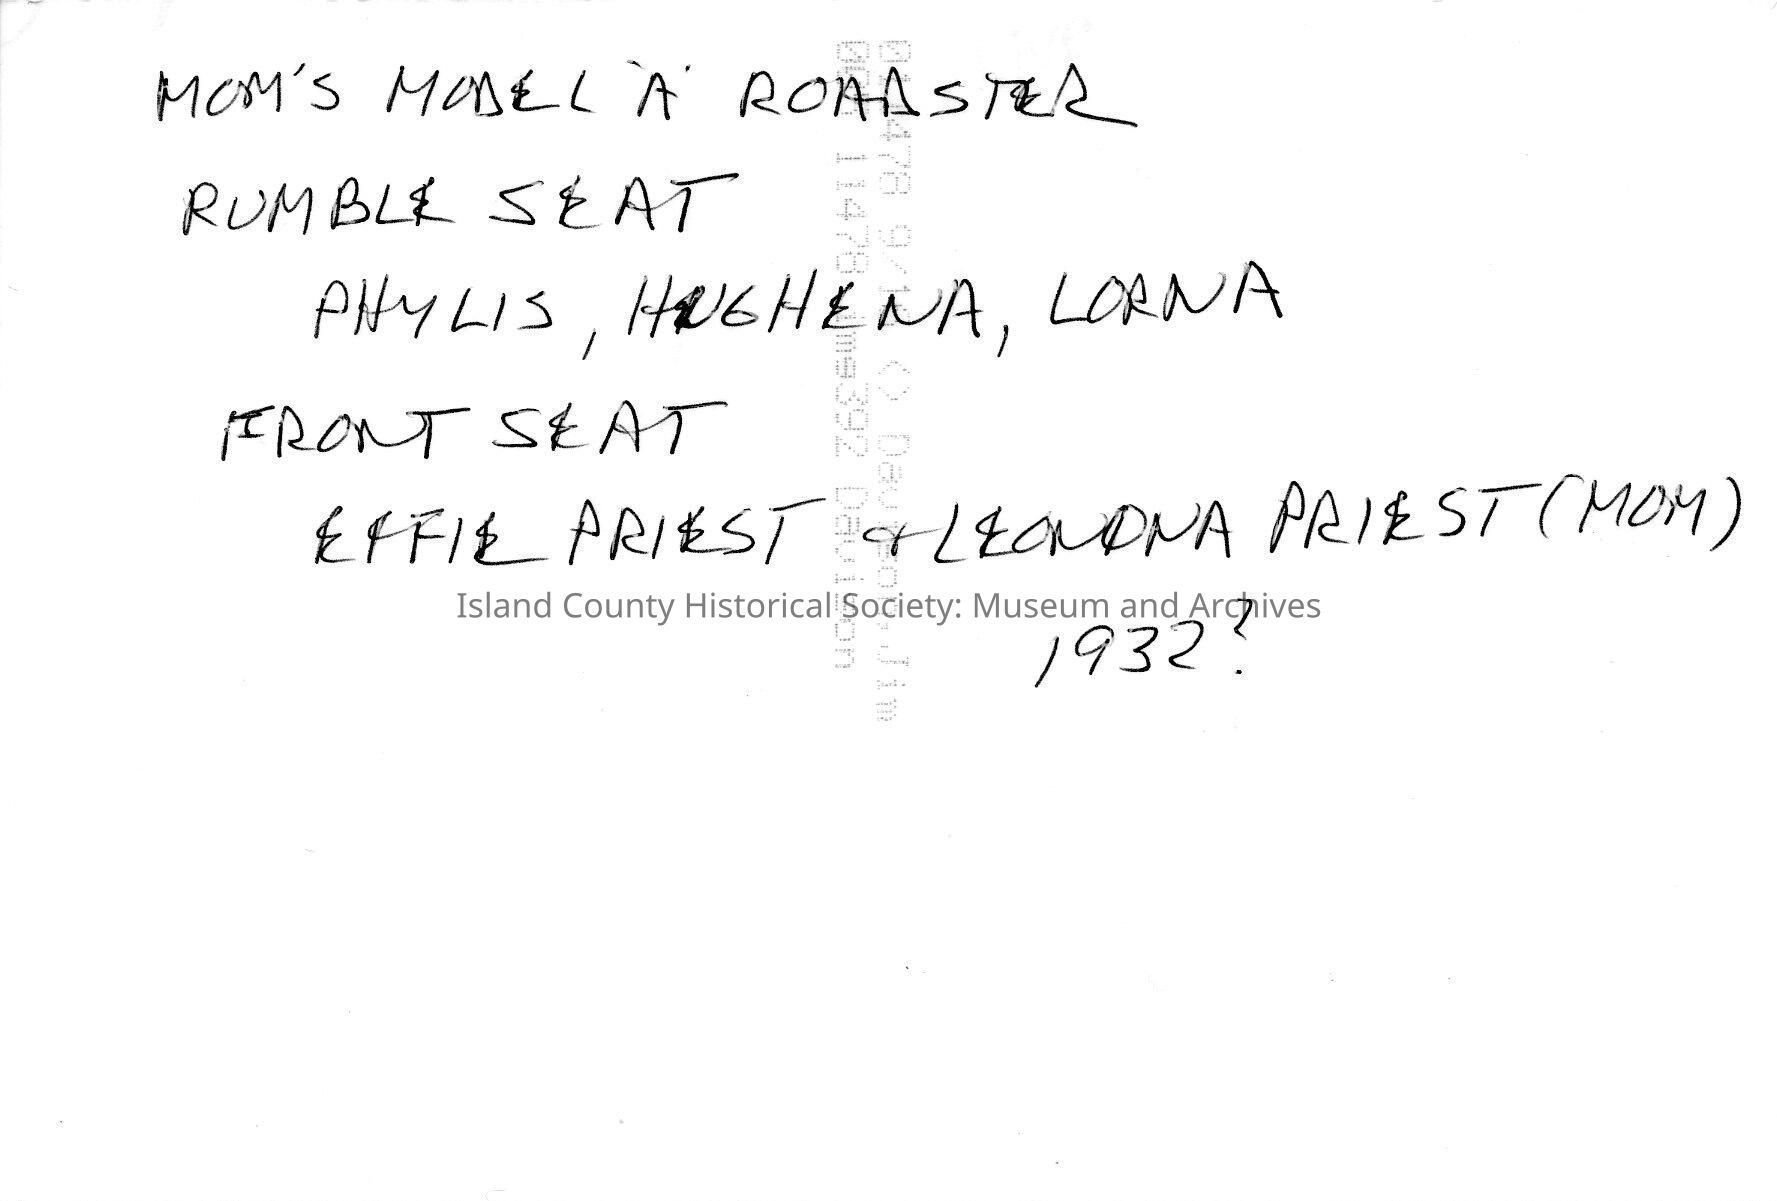 MOM'S MODEL "A" ROADSTER
RUMBLE SEAT
PHYLIS, HUGHENA, LORNA
FRONT SEAT
EFFIE PRIEST & LEONONA PRIEST (MOM)
Island County Historical Society: Museum and Archives
1932?